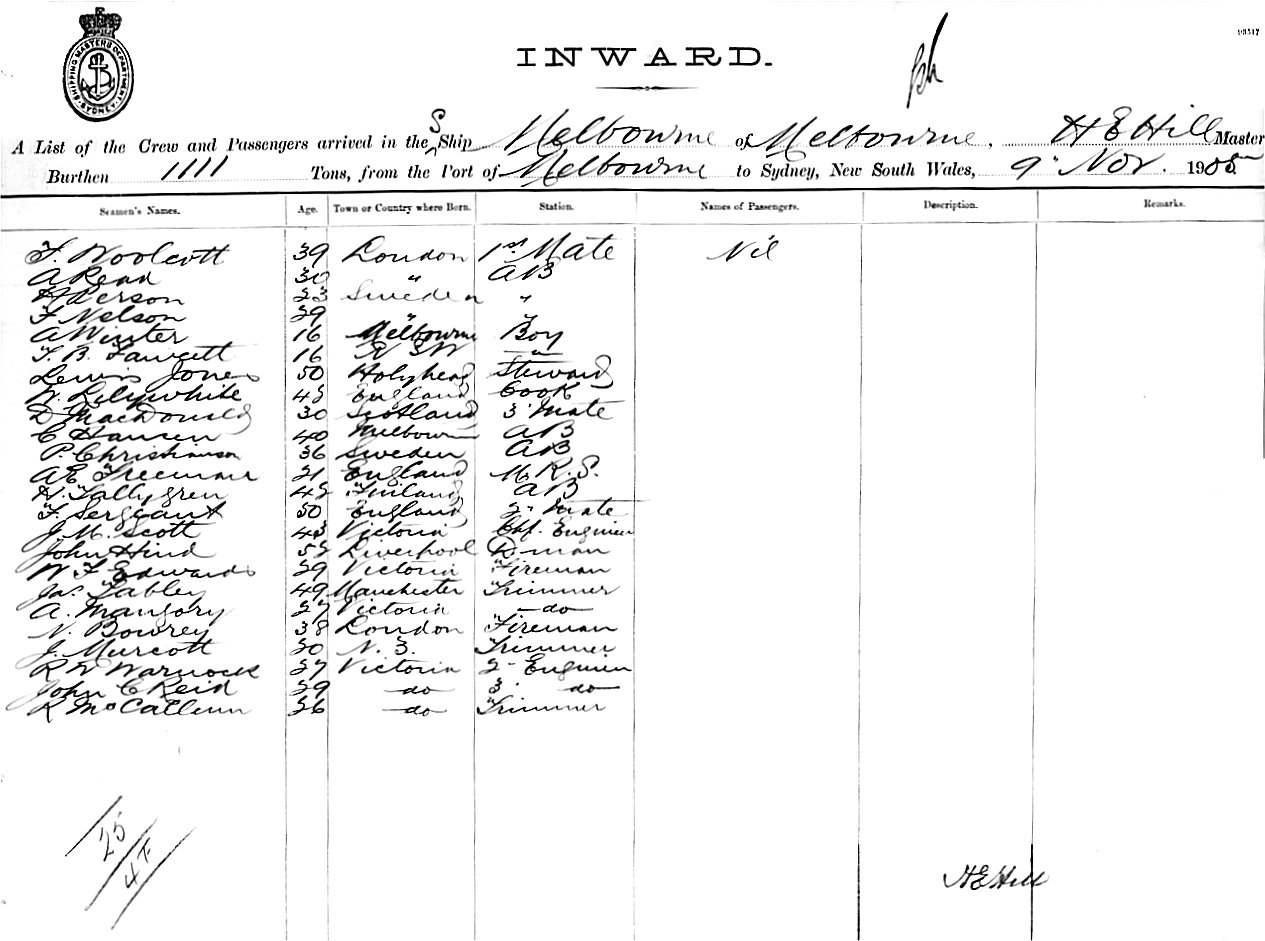 SHIPPING MASTERS DEPARTMENT SYDNEY
INWARD.
A List of the Crew and Passengers arrived in the S Ship Melbourne of Melbourne, H E Hill Master
Burthen 1111 Tons, from the Port of Melbourne to Sydney, New South Wales, 9" Nov. 1905
Seamen's Names. Age. Town or Country where Born. Station. Names of Passengers. Description. Remarks.
F. Woolcott 39 London 1st Mate Nil
A Read 30 " AB
H Person 23 Sweden "
F Nelson 29 " "
A Winter 16 Melbourne Boy
T. B. Fawcett 16 N S W "
Lewis Jones 50 Holyhead Steward
W. Lilywhite 45 England Cook
D MacDonald 30 Scotland 3 Mate
C Hansen 40 Melbourne AB
P. Christianson 36 Sweden AB
A E Freeman 21 England M. R. S.
H. Tallygren 45 Finland AB
F. Sergeant 50 England 2" Mate
J. M. Scott 43 Victoria Chf. Engineer
John Hind 55 Liverpool D-man
W F Edwards 29 Victoria Fireman
Jas. Tabley 49 Manchester Trimmer
A. Mangory 27 Victoria do
N. Bowrey 38 London Fireman
J. Murcott 20 N. Z. Trimmer
R W Warnock 27 Victoria 2" Engineer
John C Reid 29 do 3" do
R McCallum 26 do Trimmer
25
47
H E Hill